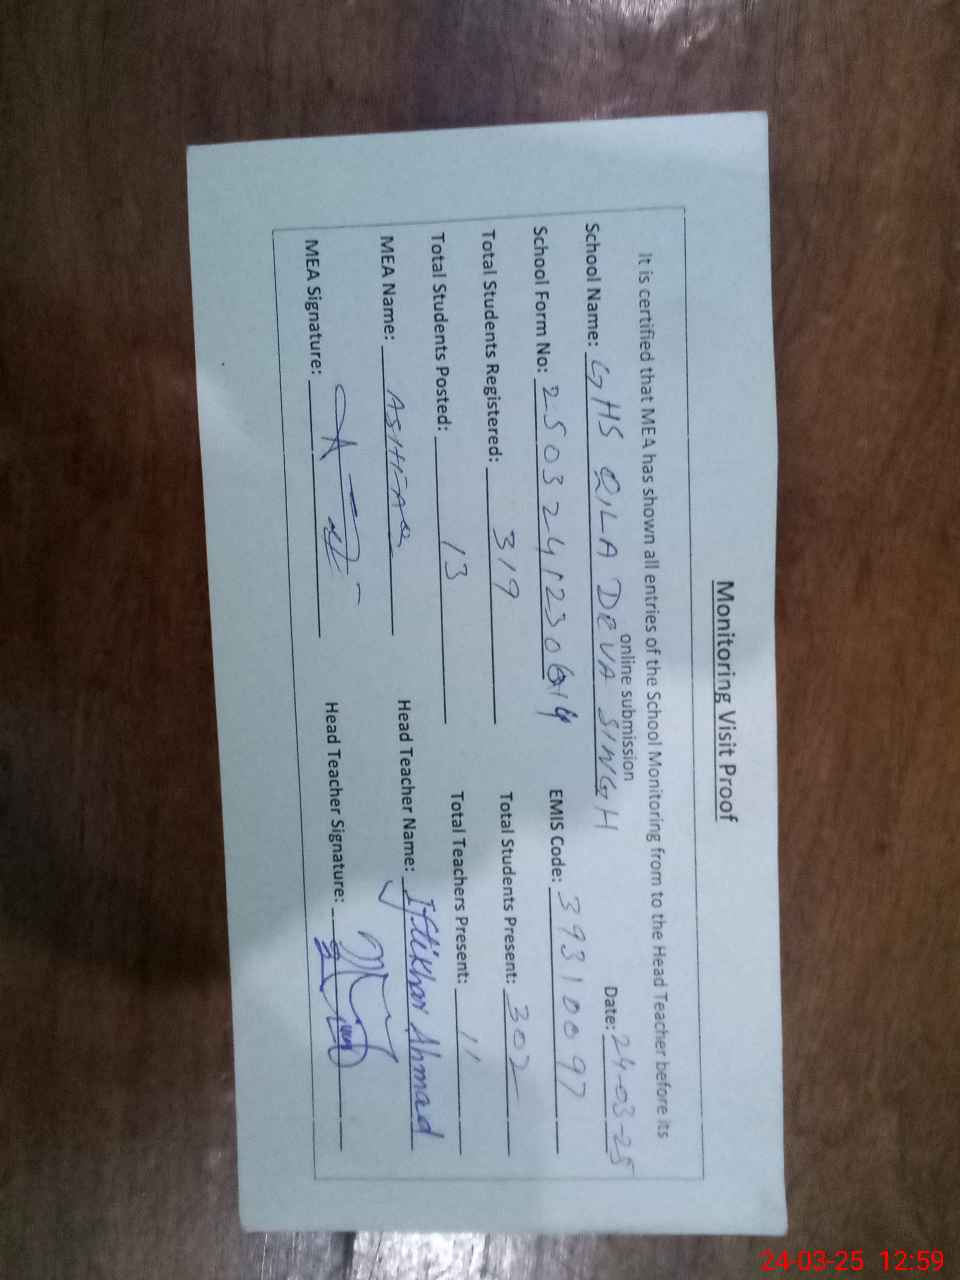 Monitoring Visit Proof
It is certified that MEA has shown all entries of the School Monitoring from to the Head Teacher before its
online submission
School Name: GHS QILA DEVA SINGH Date: 24-03-25
School Form No: EMIS Code: 39310097
Total Students Registered: 319 Total Students Present: 302
Total Students Posted: 13 Total Teachers Present: 11
MEA Name: Head Teacher Name: Iftikhar Ahmad
MEA Signature: Head Teacher Signature:
24-03-25 12:59